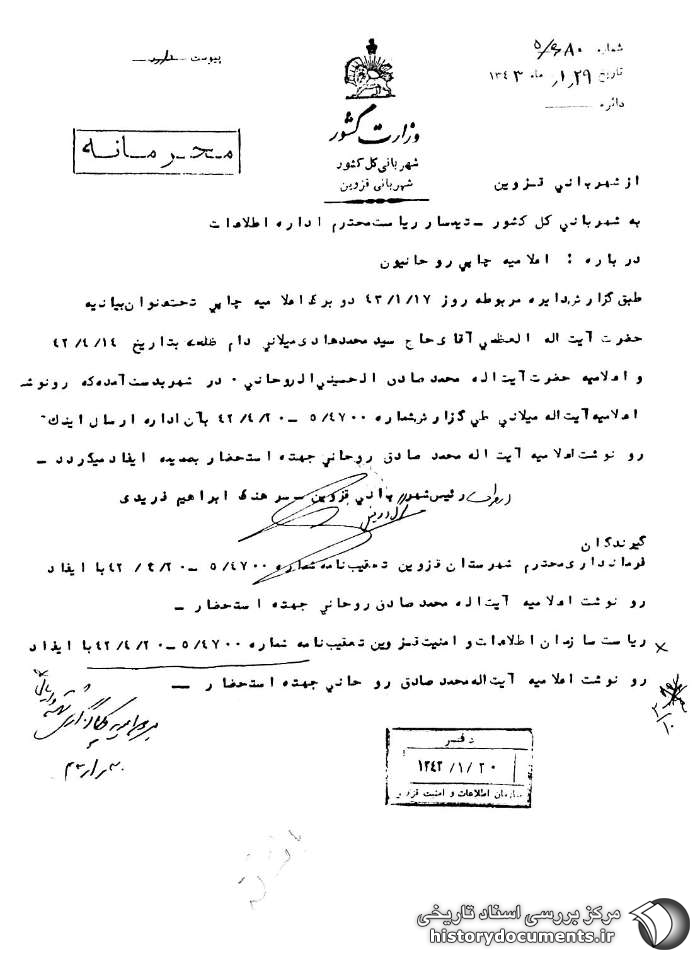 شماره ۵/۶۸۰
تاریخ ۲۹ /۱/ ماه ۱۳۴۳
دائره
پیوست دارد
وزارت کشور
شهربانی کل کشور
شهربانی قزوین
محرمانه
از شهربانی قزوین
به شهربانی کل کشور – تیمسار ریاست محترم اداره اطلاعات
درباره : اعلامیه چاپی روحانیون
طبق گزارش دایره مربوطه روز ۴۳/۱/۱۷ دو برگ اعلامیه چاپی تحت عنوان بیانیه
حضرت آیت اله العظمی آقای حاج سید محمد هادی میلانی دام ظله بتاریخ ۴۲/۴/۱۴
و اعلامیه حضرت آیت اله محمد صادق الحسینی الروحانی ۰ در شهر بدست آمده که رونوشت
اعلامیه آیت اله میلانی طی گزارش شماره ۵/۴۷۰۰ – ۴۲/۴/۲۰ بآن اداره ارسال اینک
رونوشت اعلامیه آیت اله محمد صادق روحانی جهت استحضار بضمیمه ایفاد میگردد –
رئیس شهربانی قزوین – سرهنگ ابراهیم فریدی
گیرندگان
فرمانداری محترم شهرستان قزوین تعقیب نامه شماره ۵/۴۷۰۰ – ۴۲/۴/۲۰ با ایفاد
رونوشت اعلامیه آیت اله محمد صادق روحانی جهت استحضار –
ریاست سازمان اطلاعات و امنیت قزوین تعقیب نامه شماره ۵/۴۷۰۰ – ۴۲/۴/۲۰ با ایفاد
رونوشت اعلامیه آیت اله محمد صادق روحانی جهت استحضار –
دفتر
۱۳۴۳/۱/۲۰
سازمان اطلاعات و امنیت قزوین
مرکز بررسی اسناد تاریخی
historydocuments.ir